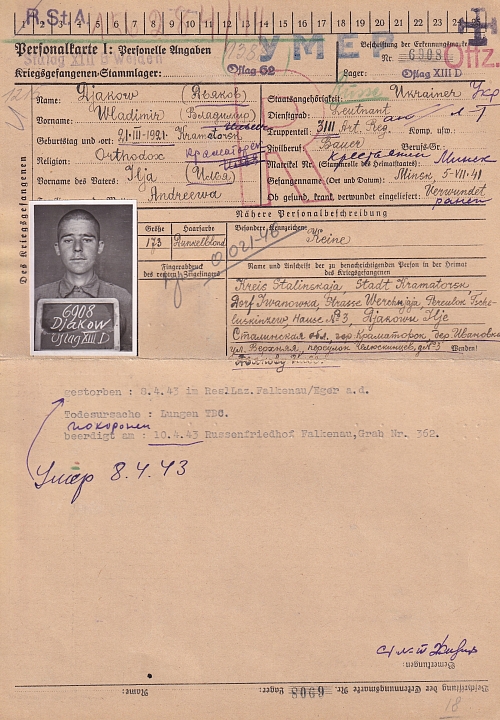 R.St.A.
1 2 3 4 5 6 7 8 9 10 11 12 13 14 15 16 17 18 19 20 21 22 23 24 25
Personalkarte I: Personelle Angaben
УМЕР
Beschriftung der Erkennungsmarke
Nr. 6908
Stalag XIII B Weiden
Kriegsgefangenen-Stammlager: Oflag 62
Lager: Oflag XIII D
Offz.
Des Kriegsgefangenen
Name: Djakow (Дьяков)
Staatsangehörigkeit: Russe Ukrainer Укр
Vorname: Wladimir Владимир
Dienstgrad: Leutnant л-т
Geburtstag und -ort: 21-III-1921. Kramatorsk
Truppenteil: 3III Art. Reg. Komp. usw.:
Religion: Orthodox Краматорск
Zivilberuf: Bauer Berufs-Gr.:
Matrikel Nr. (Stammrolle des Heimatstaates): крестьянин Минск
Vorname des Vaters: Ilja (Илья)
Gefangennahme (Ort und Datum): Minsk 5-VII-41
Andreewa
Ob gefund, krank, verwundet eingeliefert: Verwundet
ранен
Nähere Personalbeschreibung
Größe Haarfarbe Besondere Kennzeichen:
173 Dunkelblond Keine
Fingerabdruck des rechten Zeigefingers
Name und Anschrift der zu benachrichtigenden Person in der Heimat des Kriegsgefangenen
Kreis Stalinskaja, Stadt Kramatorsk
Dorf Iwanowka, Strasse Werchnjaja Pereulok Tsche-
luskinzew, Hause №3, Djakown Ilje
Сталинская обл. гор Краматорск, дер. Ивановка
ул. Верхняя, переулок Челюскинцев, д №3
Wenden!
Дьякову Илье
6908
Djakow
Oflag XIII D
gestorben : 8.4.43 im Res.Laz. Falkenau/Eger a.d.
Todesursache : Lungen TBC.
похоронен
beerdigt am : 10.4.43 Russenfriedhof Falkenau, Grab Nr. 362.
Умер 8.4.43
Bemerkungen:
Beschriftung der Erkennungsmarke Nr. 6908 Lager:
Name:
18